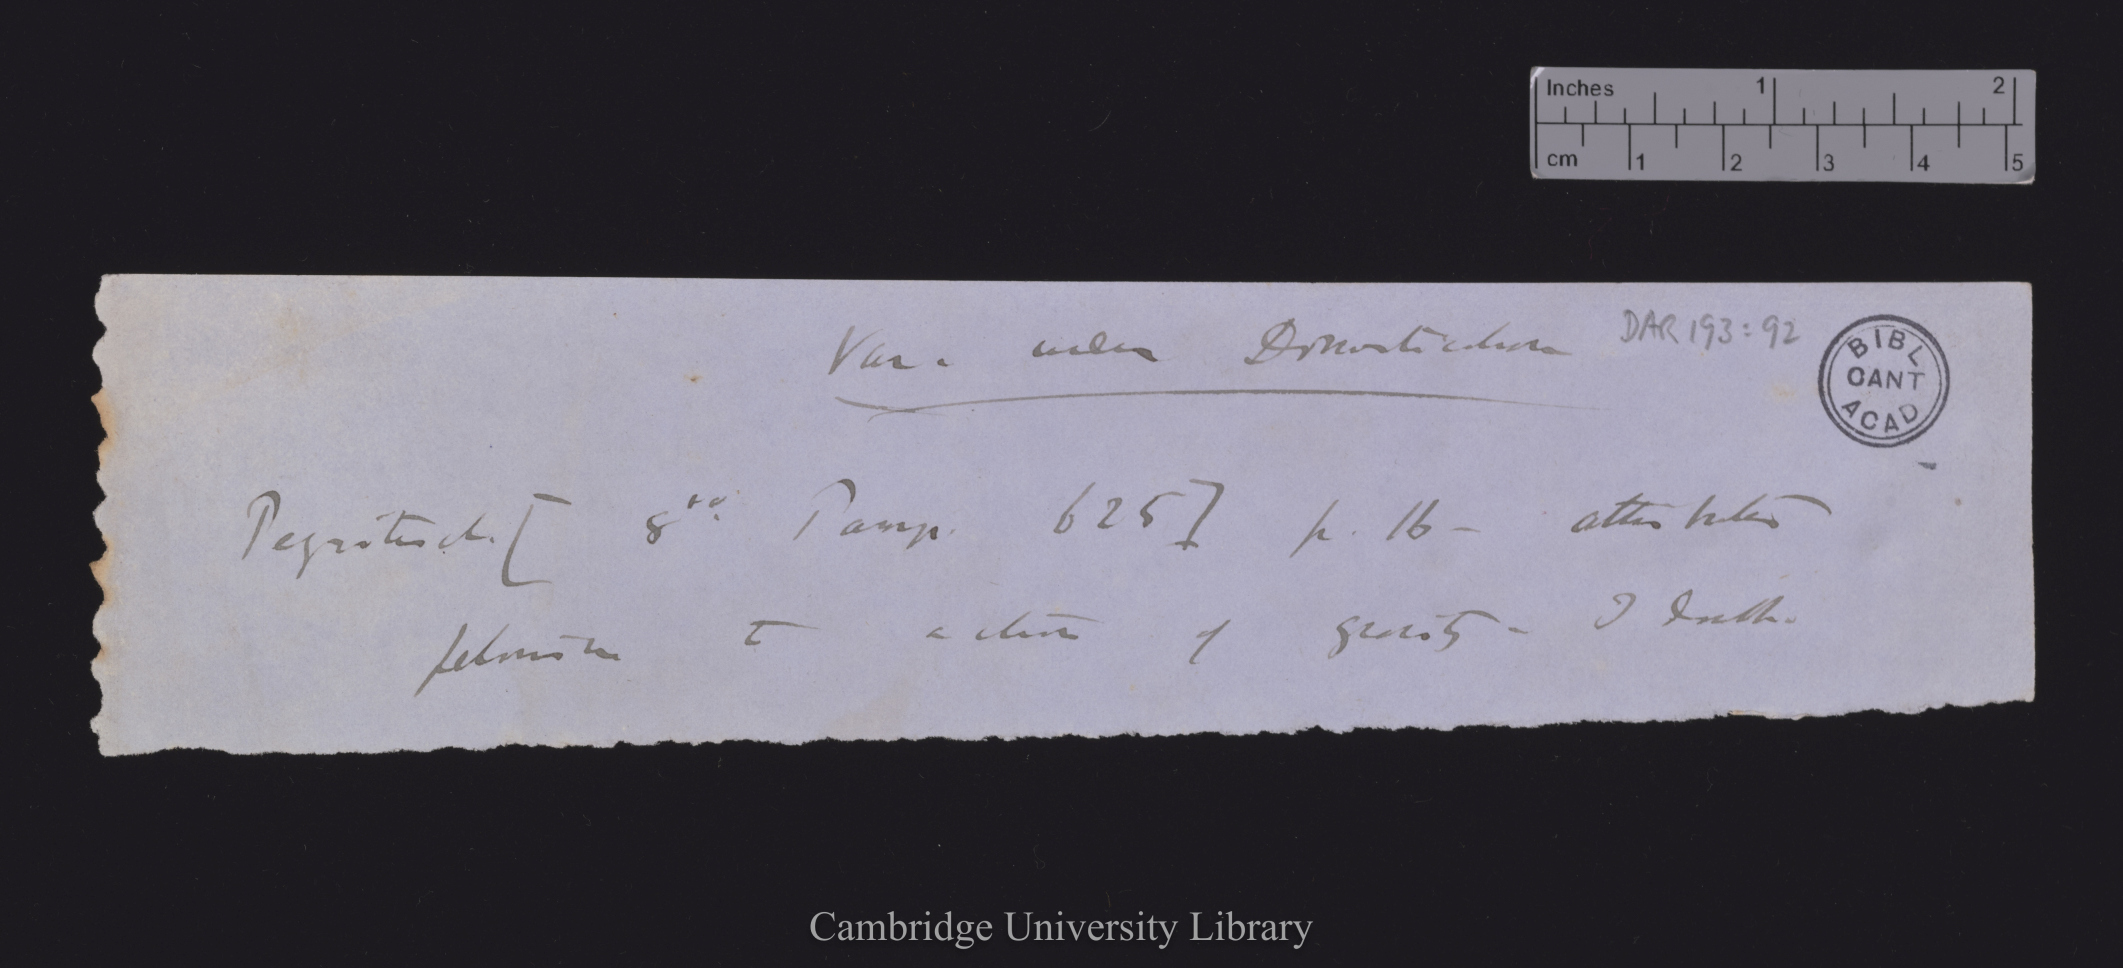 Inches 1 2
cm 1 2 3 4 5
Var. under Domestication
DAR 193:92
BIBL
CANT
ACAD
[ 8vo. Pamp. 625] p. 16 – attributes
to action of gravity – I doubt.
Cambridge University Library